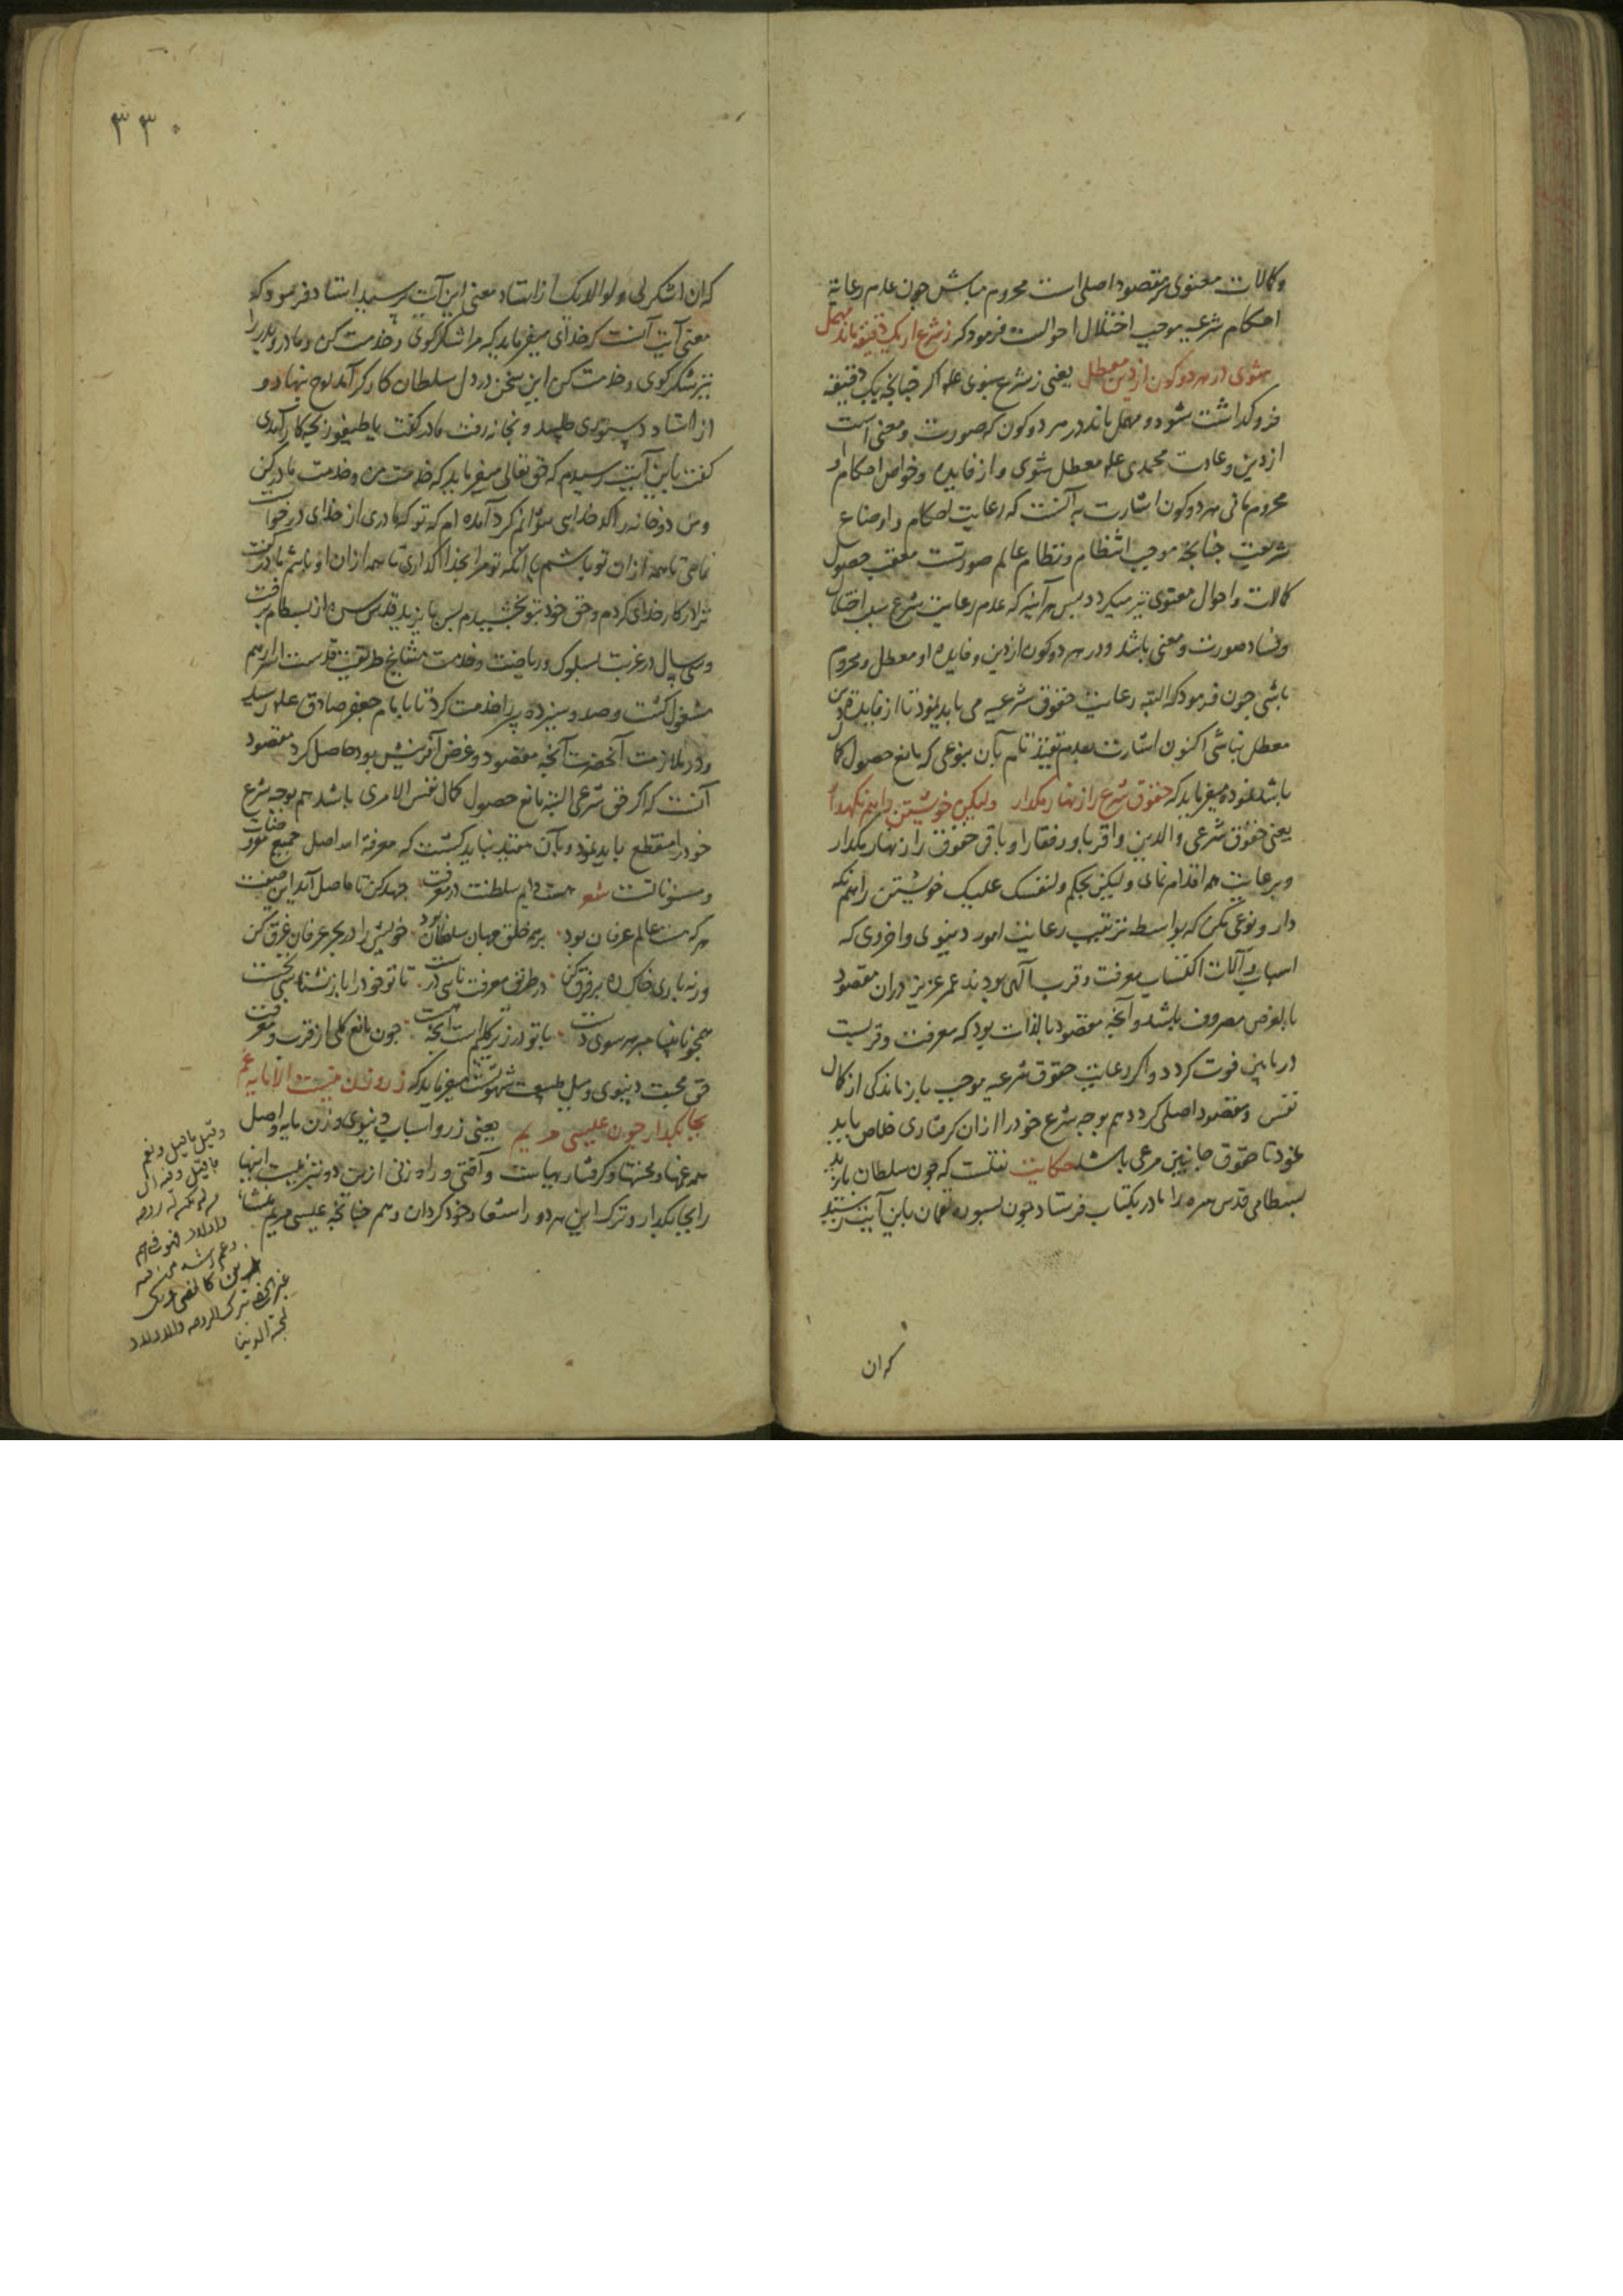 وکمالات معنوی که مقصود اصلی است محروم مباش چون عدم رعایة
احکام شرعیه موجب اختلال احوالست فرمود که ز شرع ار یک دقیقه ماند مهمل
شوی در هر دو کون از دین معطل یعنی ز شرع نبوی علم اکر چنانچه یک دقیقه
فرو کداشت شود و مهمل ماند در هر دو کون که صورت و معنی است
از دین و عادت محمدی علم معطل شوی و از فایده و خواص احکام او
محروم مانی هر دو کون اشارت به آنست که رعایت احکام و اوضاع
شریعت چنانچه موجب انتظام و نظام عالم صورتست معقب حصول
کمالات و احوال معنوی نیز میکردد پس هر آینه که عدم رعایت شرع سبب اختلال
و فساد صورت و معنی باشد و در هر دو کون از دین و فایده او معطل و محروم
باشی چون فرمود که البته رعایت حقوق شرعیه می باید نمود تا از فایده دین
معطل نباشی اکنون اشارت بعدم تقید تام بآن بنوعی که مانع حصول کمال
باشد نموده میفرماید که حقوق شرع را زنهار مکذار ولیکن خویشتن را هم نکهدار
یعنی حقوق شرعی والدین و اقربا و رفقا را و باقی حقوق را زنهار مکذار
و برعایت همه اقدام نمای ولیکن بحکم ولنفسک علیک خویشتن را هم نکه
دار و نوعی مکن که بواسطه ترتیب رعایت امور دنیوی و اخروی که
اسباب و آلات اکتساب معرفت و قرب الهی بودند عمر عزیز در ان مقصود
بالعرض مصروف باشد و آنچه مقصود بالذات بود که معرفت و قربست
درمابین فوت کردد و اکر رعایت حقوق شرعیه موجب بازماندکی از کمال
نفس و مقصود اصلی کردد هم بوجه شرع خود را از ان کرفتاری خلاص باید
نمود تا حقوق جانبین مرعی باشد حکایت نقلست که چون سلطان بایزید
بسطامی قدس سره را مادر بکتاب فرستاد چون بسوره لقمان باین آیت رسید
که ان
۳۳۰
که ان اشکر لی ولوالدیک از استاد معنی این آیت پرسید استاد فرمود که
معنی آیت آنست که خدای میفرماید که مرا شکر کوی و خدمت کن و مادر و پدر را
نیز شکر کوی و خدمت کن این سخن در دل سلطان کارکر آمد لوح بنهاد و
از استاد دستوری طلبید و بخانه رفت مادر کفت یا طیفور بچه کار آمدی
کفت باین آیت رسیدم که حق تعالی میفرماید که خدمت من و خدمت مادر کن
و من دو خانه را کدخدایی نتوانم کرد آمده ام که تو که مادری از خدای درخواست
نمایی تا همه از ان تو باشم یا آنکه تو مرا بخدا کذاری تا همه از ان او باشم مادر کفت
ترا در کار خدای کردم و حق خود بتو بخشیدم پس بایزید قدس سره از بسطام برفت
و سی سال در غربت بسلوک و ریاضت و خدمت مشایخ طریقت قدست اسرارهم
مشغول کشت و صد و سیزده پیر را خدمت کرد تا بامام جعفر صادق علیه رسید
و در ملازمت آنحضرت آنچه مقصود و غرض آفرینش بود حاصل کرد مقصود
آنست که اکر حق شرعی البته مانع حصول کمال نفس الامری باشد هم بوجه شرع
خود را منقطع باید نمود و بآن مقید نباید کشت که معرفة الله اصل جمیع مفروضات
و مسنونات شعر هست دایم سلطنت در معرفت جهد کن تا حاصل آید این صفت
هر که مست عالم عرفان بود بر همه خلق جهان سلطان بود خویش را در بحر عرفان غرق کن
ورنه باری خاک ره بر فرق کن در طریق معرفت تا تو خود را باز نشناسی
همچو نابینا مبر هر سوی دست با تو در زیر کلیم است آنچه هست چون مانع کلی از قرب و معرفت
حق محبت دنیوی و میل بطبیعت شهوتست میفرماید که زر و زن نیست الا مایه غم
بجا بکذار چون عیسی مریم یعنی زر و اسباب دنیوی و زن مایه و اصل
همه غمها و محنتها و کرفتاریهاست و آفتی و راه زنی ازین دو نیست اینها
را بجا بکذار و ترک این هر دو را استعداد خود کردان و هم چنانچه عیسی مریم
ترک الزوجه والاولاد